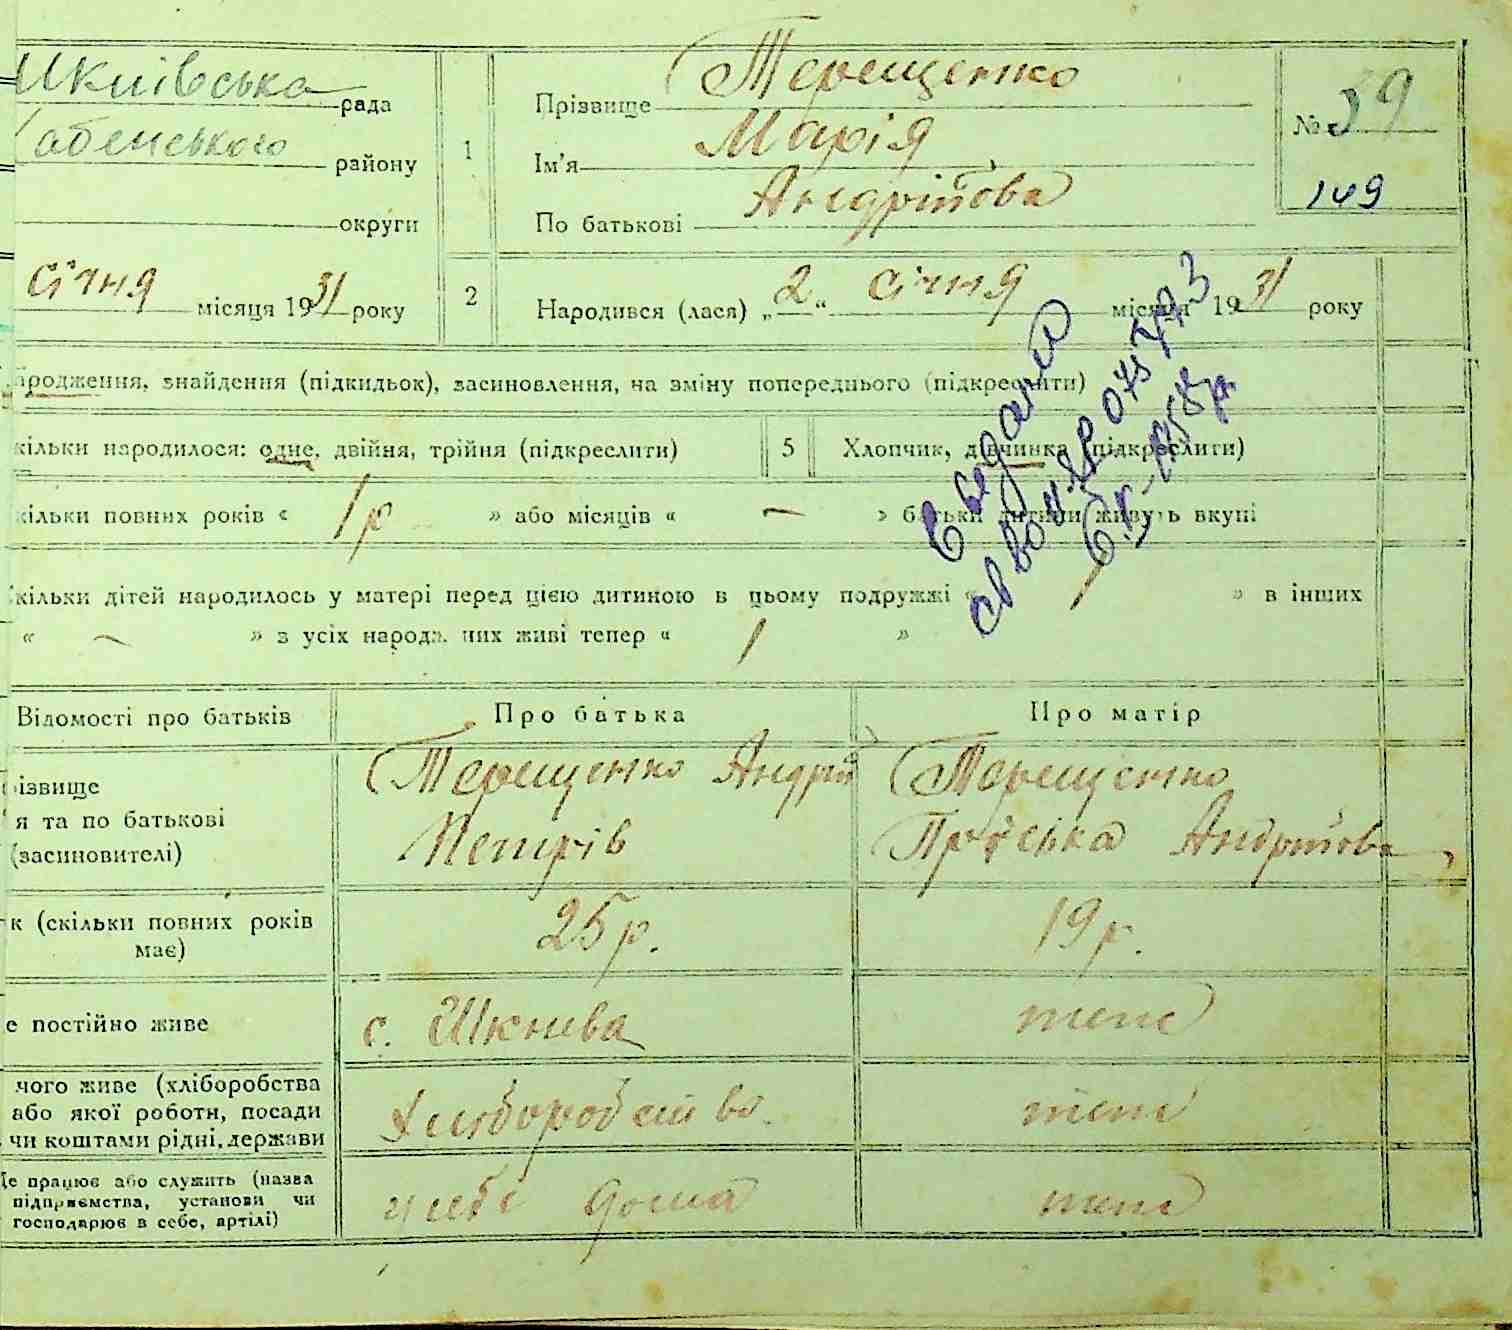 Шкнівська рада
абенського району
округи
січня місяця 1931 року
1
Прізвище Терещенко
Ім'я Марія
По батькові Андріївова
№ 39
149
2
Народився (лася) „2“ січня місяця 1931 року
ародження, знайдення (підкидьок), засиновлення, на зміну попереднього (підкреслити)
кільки народилося: одне, двійня, трійня (підкреслити)
5
Хлопчик, дівчинка (підкреслити)
кільки повних років « 1 р » або місяців « — » батьки дитини живуть вкупі
кільки дітей народилось у матері перед цією дитиною в цьому подружжі « / » в інших
« — » з усіх народж. них живі тепер « 1 »
Відомості про батьків
Про батька
Про матір
різвище
я та по батькові
(засиновителі)
Терещенко Андрій
Петрів
Терещенко
Пріська Андріївова
к (скільки повних років
має)
25 р.
19 р.
е постійно живе
с. Шкнева
теж
чого живе (хліборобства
або якої роботи, посади
чи коштами рідні, держави
Хліборобство.
теж
Де працює або служить (назва
підприємства, установи чи
господарює в себе, артілі)
у себе дома
теж